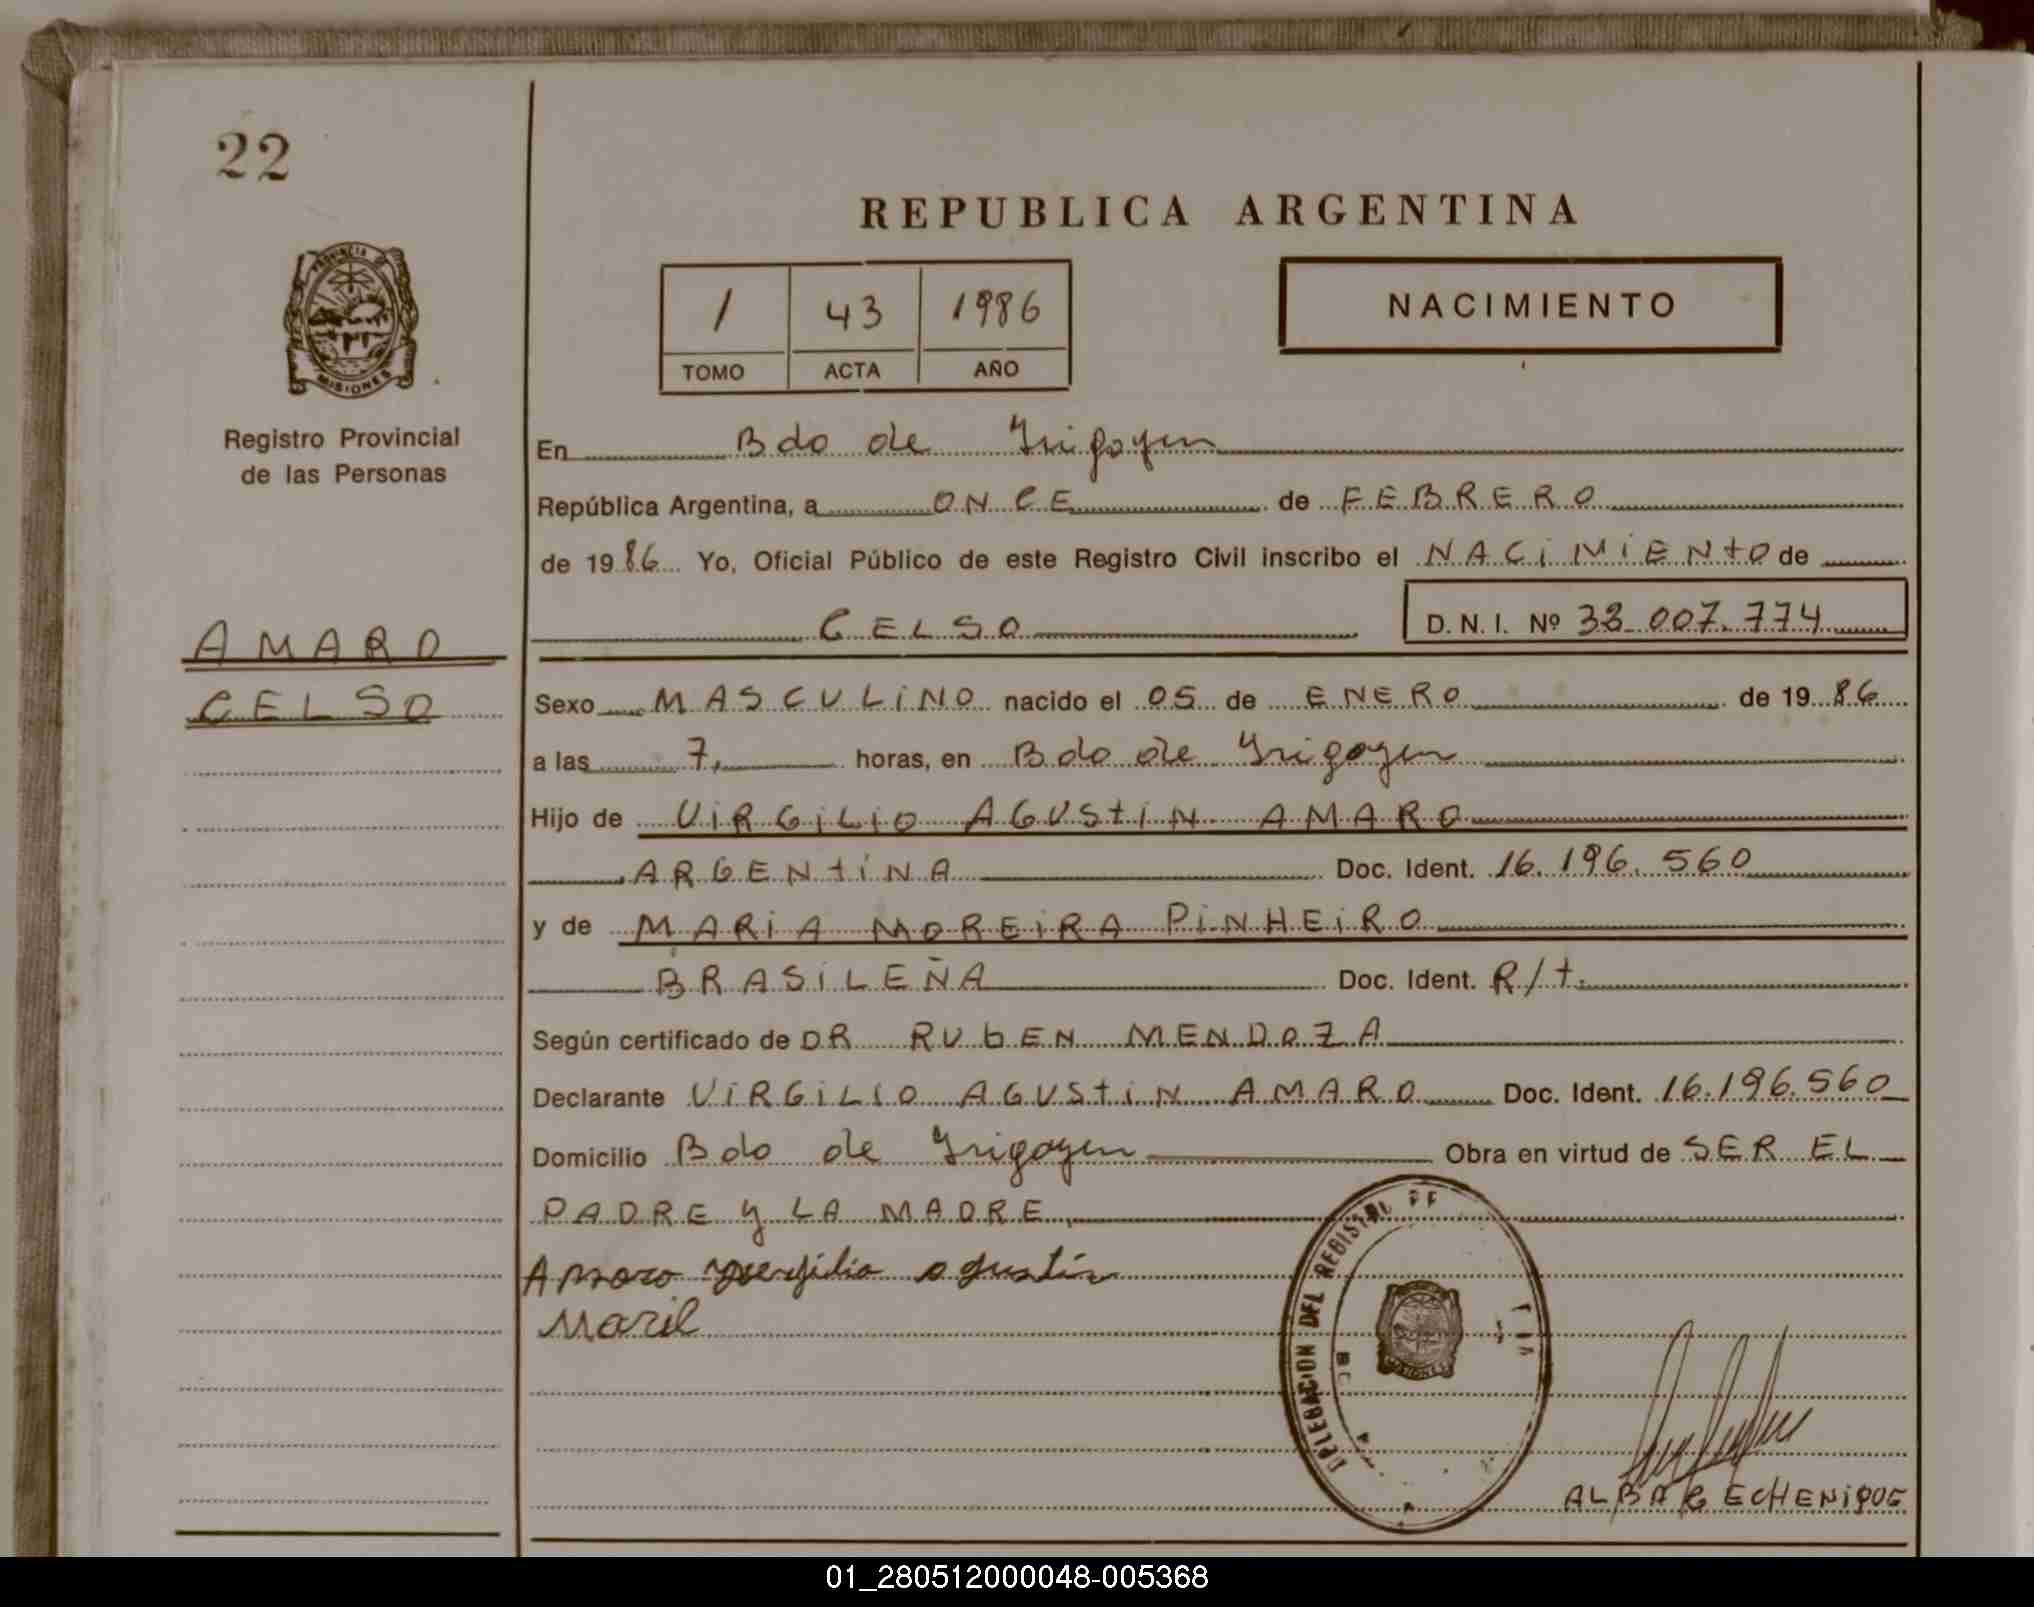 22
REPUBLICA ARGENTINA
PROVINCIA DE
MISIONES
1 43 1986
TOMO ACTA AÑO
NACIMIENTO
Registro Provincial
de las Personas
En Bdo de Irigoyen
República Argentina, a ONCE de FEBRERO
de 1986 Yo, Oficial Público de este Registro Civil inscribo el NACIMIENTO de
CELSO D.N.I. Nº 33.007.774
AMARO
CELSO
Sexo MASCULINO nacido el 05 de ENERO de 1986
a las 7, horas, en Bdo de Irigoyen
Hijo de VIRGILIO AGUSTIN AMARO
ARGENTINA Doc. Ident. 16.196.560
y de MARIA MOREIRA PINHEIRO
BRASILEÑA Doc. Ident. R/t.
Según certificado de DR RUbEN MENDOZA
Declarante VIRGILIO AGUSTIN AMARO Doc. Ident. 16.196.560
Domicilio Bdo de Irigoyen Obra en virtud de SER EL
PADRE y LA MADRE
Amaro agustin
DELEGACION DEL
MISIONES
ALBA R ECHENIQUE
01_280512000048-005368